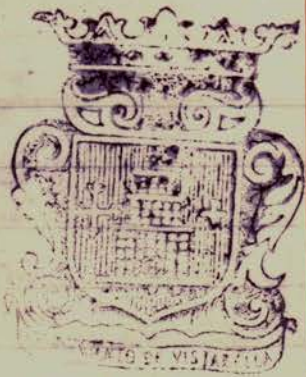 DE VISTABELLA